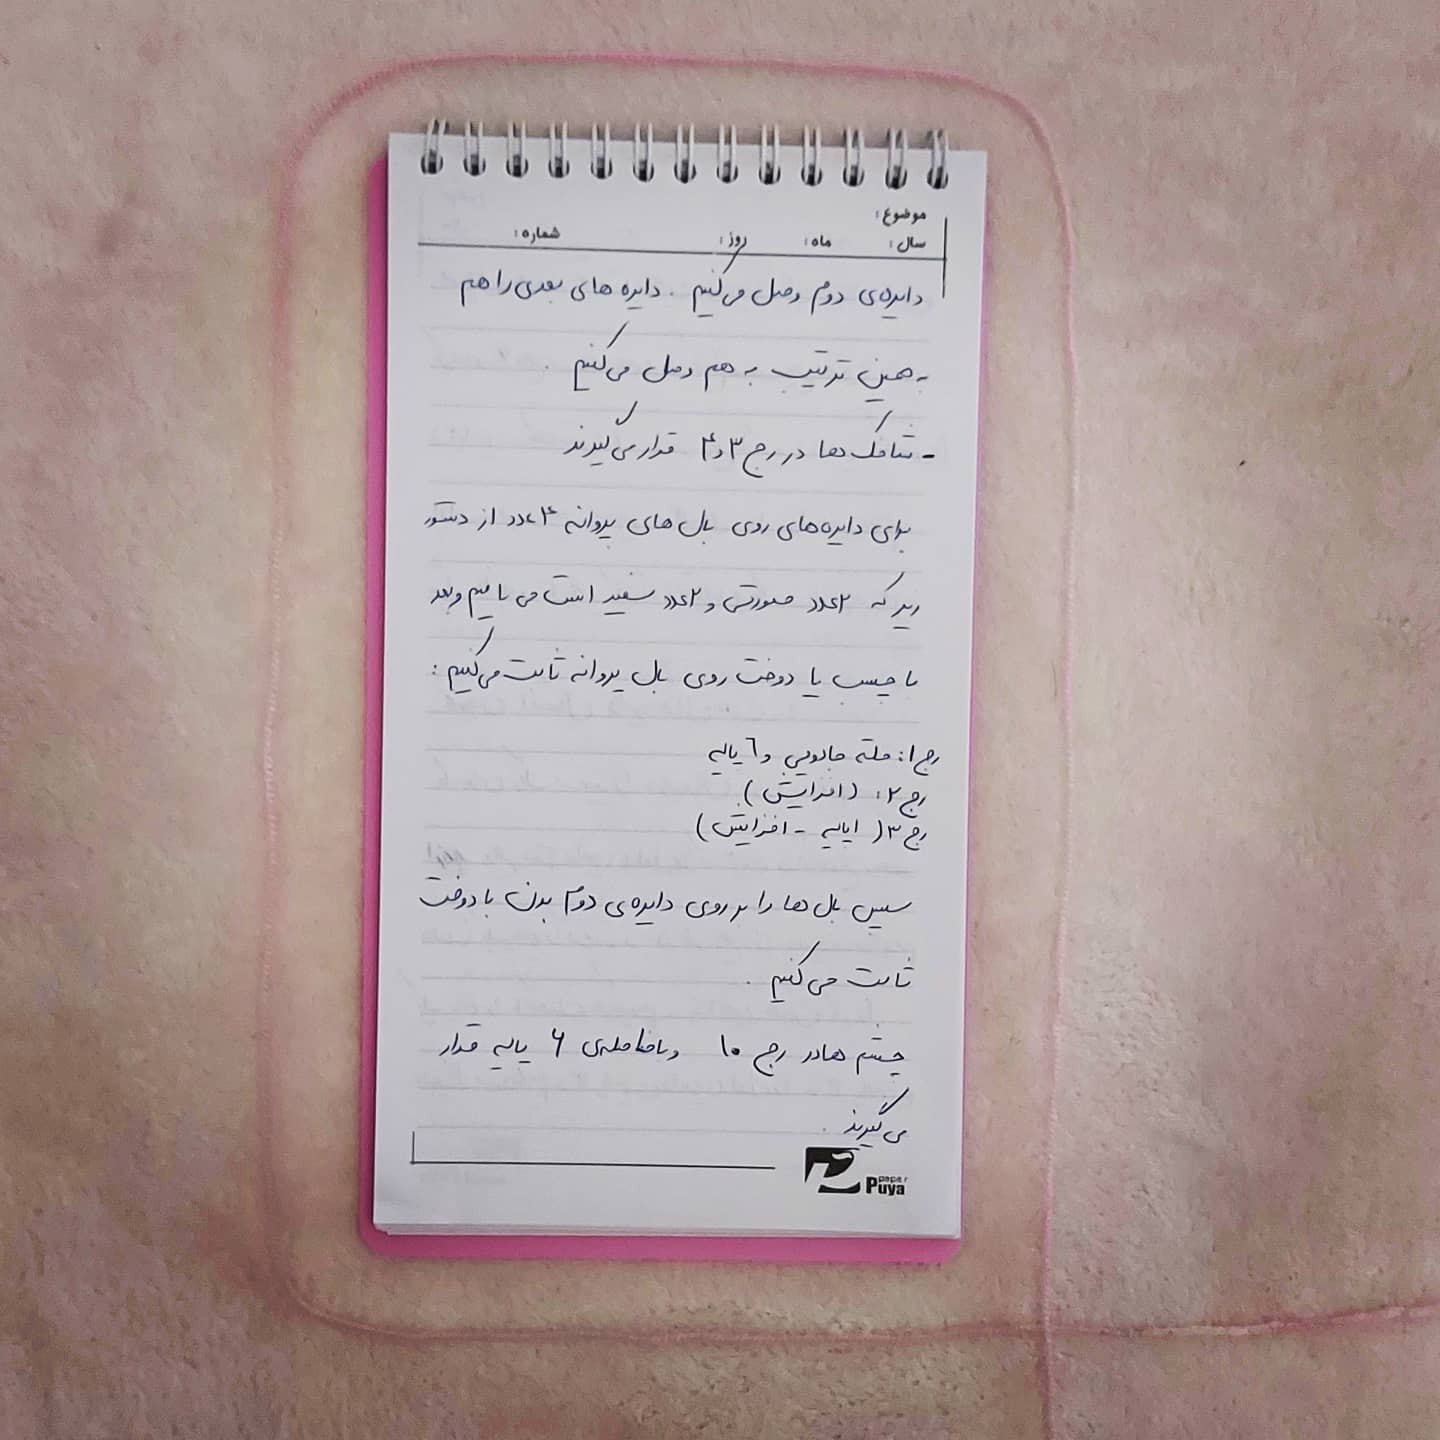 موضوع:
سال: ماه: روز: شماره:
دایره‌ی دوم وصل می‌کنیم. دایره های بعدی را هم
به همین ترتیب به هم وصل می‌کنیم.
- شاخک ها در رج ۳ و ۴ قرار می‌گیرند
برای دایره‌های روی بال های پروانه ۴ عدد از دستور
زیر که ۲ عدد صورتی و ۲ عدد سفید است می بافیم و بعد
با چسب یا دوخت روی بال پروانه ثابت می‌کنیم:
رج ۱: حلقه جادویی و ۶ پایه
رج ۲: (افزایش)
رج ۳ (۱ پایه - افزایش)
سپس بال ها را بر روی دایره‌ی دوم بدن با دوخت
ثابت می‌کنیم.
چشم ها در رج ۱۰ و با فاصله‌ی ۶ پایه قرار
می‌گیرند.
paper
Puya